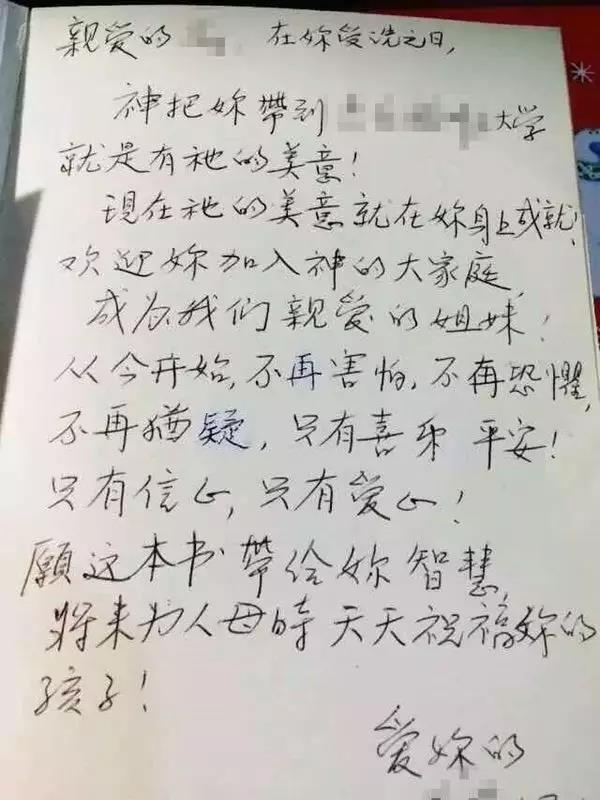 親爱的 在妳受洗之日,
神把妳帶到 大学
就是有祂的美意!
現在祂的美意就在妳身上成就!
欢迎妳加入神的大家庭,
成为我们親愛的姐妹!
从今开始,不再害怕,不再恐懼,
不再猶疑,只有喜乐 平安!
只有信心,只有爱心!
願这本书帶给妳智慧,
将来为人母時天天祝福妳的
孩子!
爱妳的